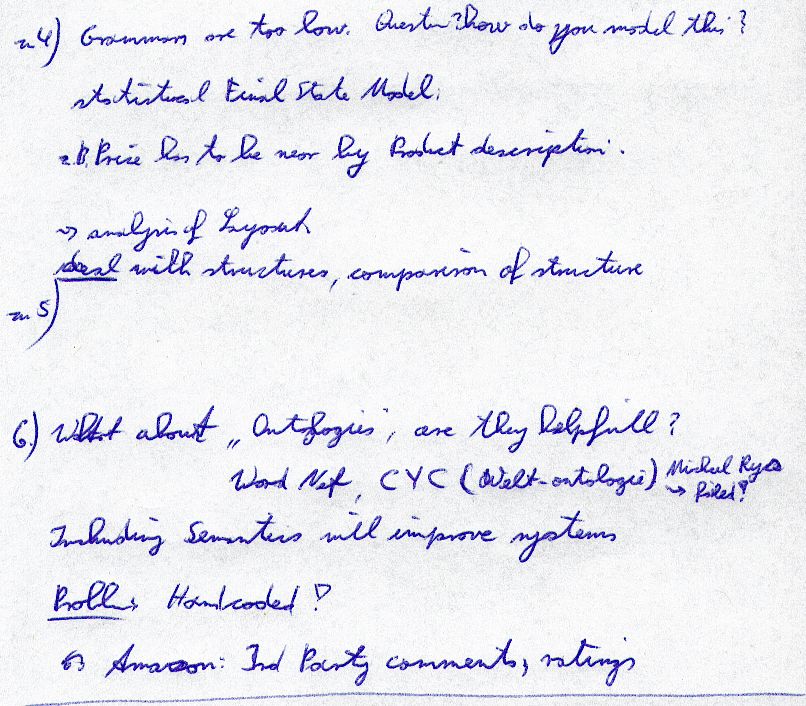 zu 4) Grammars are too low. Question: how do you model this?
statistical Final State Model.
z.B. Price has to be near by Product description.
→ analysis of Layout
deal with structures, comparison of structure
zu 5)
6.) What about „Ontologies", are they helpfull?
Word Net, CYC (Welt-ontologie) Michael
→ failed?
Including Semantics will improve systems
Probl.: Handcoded!
Amazon: 3rd Party comments, ratings